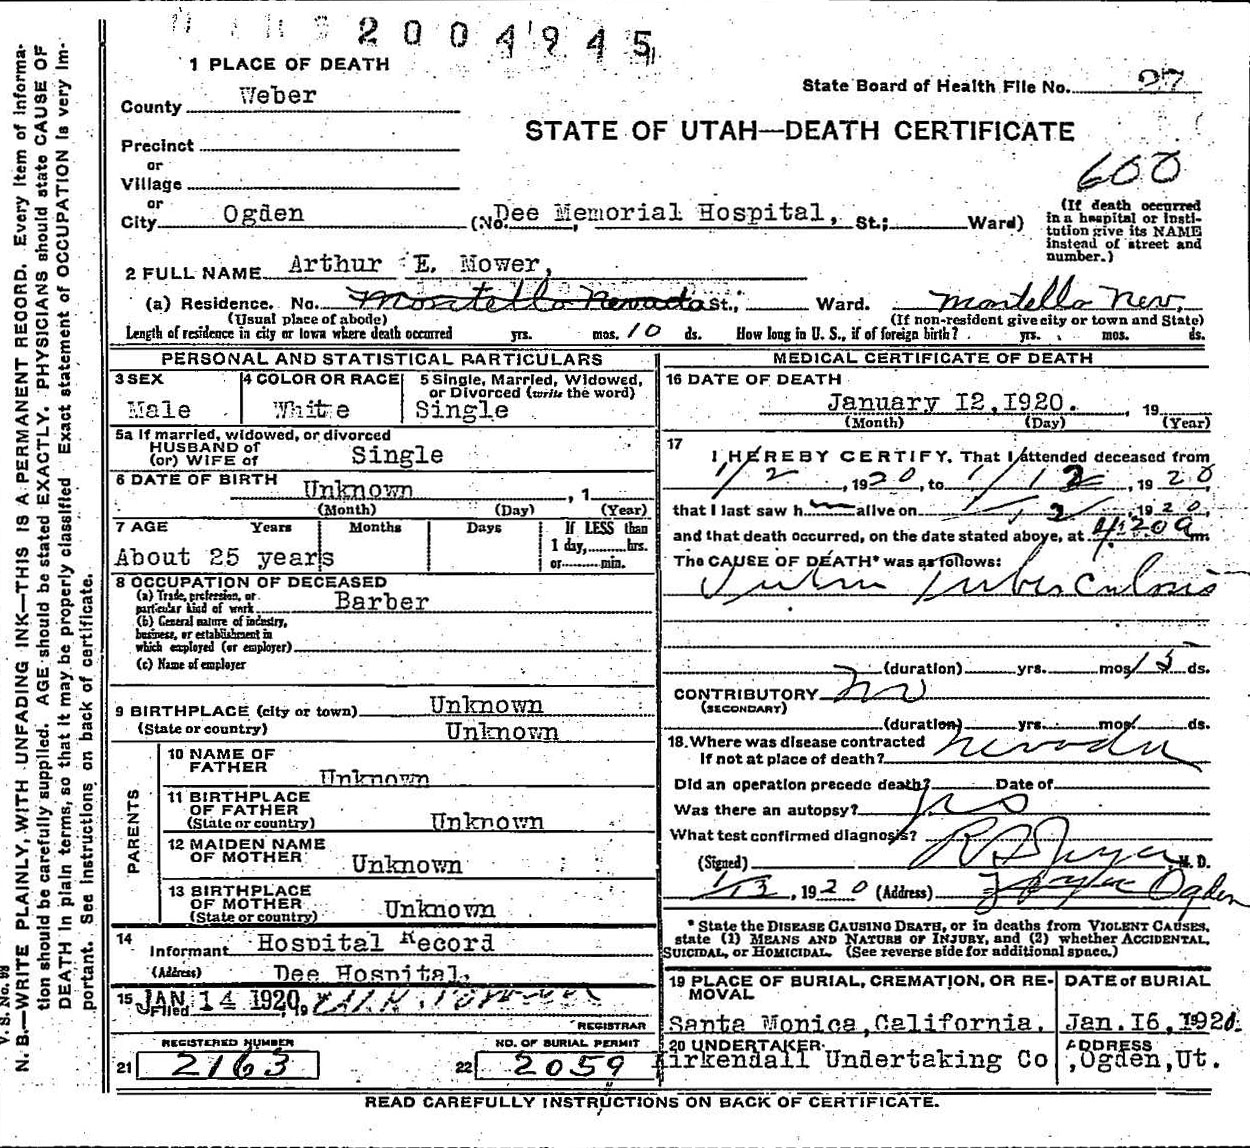 2004945
1 PLACE OF DEATH
State Board of Health File No. 27
County Weber
STATE OF UTAH—DEATH CERTIFICATE
Precinct
or
Village
600
or
City Ogden (No. Dee Memorial Hospital, St.; Ward)
(If death occurred in a hospital or institution give its NAME instead of street and number.)
2 FULL NAME Arthur E. Mower,
(a) Residence. No. Montello Nevada St., Ward. Montello Nev,
(Usual place of abode) (If non-resident give city or town and State)
Length of residence in city or town where death occurred yrs. mos. 10 ds. How long in U. S., if of foreign birth? yrs. mos. ds.
PERSONAL AND STATISTICAL PARTICULARS
3 SEX
Male
4 COLOR OR RACE
White
5 Single, Married, Widowed,
or Divorced (write the word)
Single
5a If married, widowed, or divorced
HUSBAND of
(or) WIFE of Single
6 DATE OF BIRTH Unknown , 1
(Month) (Day) (Year)
7 AGE Years Months Days If LESS than
1 day, hrs.
or min.
About 25 years
8 OCCUPATION OF DECEASED
(a) Trade, profession, or
particular kind of work Barber
(b) General nature of industry,
business, or establishment in
which employed (or employer)
(c) Name of employer
9 BIRTHPLACE (city or town) Unknown
(State or country) Unknown
PARENTS
10 NAME OF
FATHER Unknown
11 BIRTHPLACE
OF FATHER
(State or country) Unknown
12 MAIDEN NAME
OF MOTHER Unknown
13 BIRTHPLACE
OF MOTHER
(State or country) Unknown
14
Informant Hospital Record
(Address) Dee Hospital,
15 Filed JAN 14 1920, 19
REGISTRAR
REGISTERED NUMBER
21 2163
NO. OF BURIAL PERMIT
22 2059
MEDICAL CERTIFICATE OF DEATH
16 DATE OF DEATH
January 12, 1920. , 19
(Month) (Day) (Year)
17
I HEREBY CERTIFY, That I attended deceased from
1/2, 1920, to 1/12, 1920,
that I last saw h alive on 1/12, 1920,
and that death occurred, on the date stated above, at 4:20 a m.
The CAUSE OF DEATH* was as follows:
Tuberculosis
(duration) yrs. mos. 15 ds.
CONTRIBUTORY no
(SECONDARY)
(duration) yrs. mos. ds.
18. Where was disease contracted
If not at place of death? Nevada
Did an operation precede death? Date of
Was there an autopsy? no
What test confirmed diagnosis?
(Signed) M. D.
1/13, 1920 (Address) Ogden
* State the DISEASE CAUSING DEATH, or in deaths from VIOLENT CAUSES,
state (1) MEANS AND NATURE OF INJURY, and (2) whether ACCIDENTAL,
SUICIDAL, or HOMICIDAL. (See reverse side for additional space.)
19 PLACE OF BURIAL, CREMATION, OR RE-
MOVAL
Santa Monica, California.
DATE of BURIAL
Jan. 16, 1920.
20 UNDERTAKER
Kirkendall Undertaking Co
ADDRESS
,Ogden, Ut.
READ CAREFULLY INSTRUCTIONS ON BACK OF CERTIFICATE.
V. S. No. 98
N. B.—WRITE PLAINLY, WITH UNFADING INK—THIS IS A PERMANENT RECORD. Every item of informa-
tion should be carefully supplied. AGE should be stated EXACTLY. PHYSICIANS should state CAUSE OF
DEATH in plain terms, so that it may be properly classified. Exact statement of OCCUPATION is very im-
portant. See instructions on back of certificate.